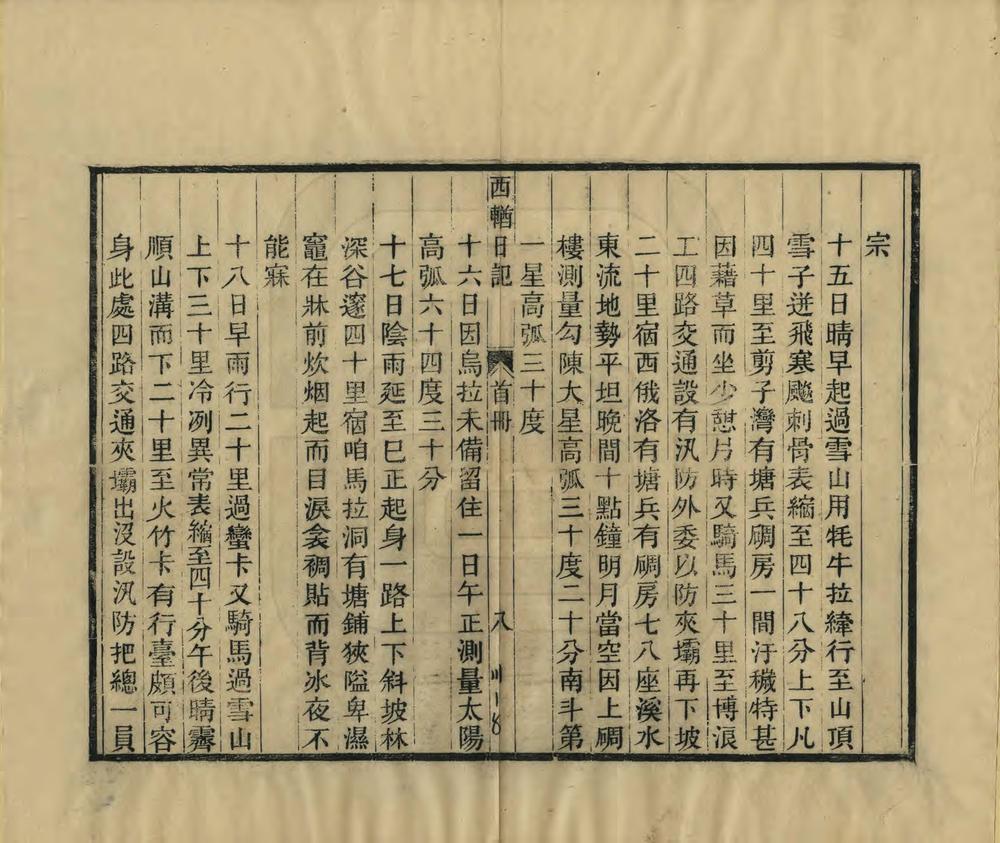 宗
十五日晴早起過雪山用牦牛拉縴行至山頂
雪子迸飛寒飈刺骨表縮至四十八分上下凡
四十里至剪子灣有塘兵碉房一間汙穢特甚
因藉草而坐少憩片時又騎馬三十里至博浪
工四路交通設有汛防外委以防夾壩再下坡
二十里宿西俄洛有塘兵有碉房七八座溪水
東流地勢平坦晚間十點鐘明月當空因上碉
樓測量勾陳大星高弧三十度二十分南斗第
一星高弧三十度
西輶日記
首冊
八
川-18
十六日因烏拉未備留住一日午正測量太陽
高弧六十四度三十分
十七日陰雨延至巳正起身一路上下斜坡林
深谷邃四十里宿咱馬拉洞有塘鋪狹隘卑濕
竈在牀前炊烟起而目淚衾裯貼而背冰夜不
能寐
十八日早雨行二十里過蠻卡又騎馬過雪山
上下三十里冷冽異常表縮至四十分午後晴霽
順山溝而下二十里至火竹卡有行臺頗可容
身此處四路交通夾壩出沒設汛防把總一員